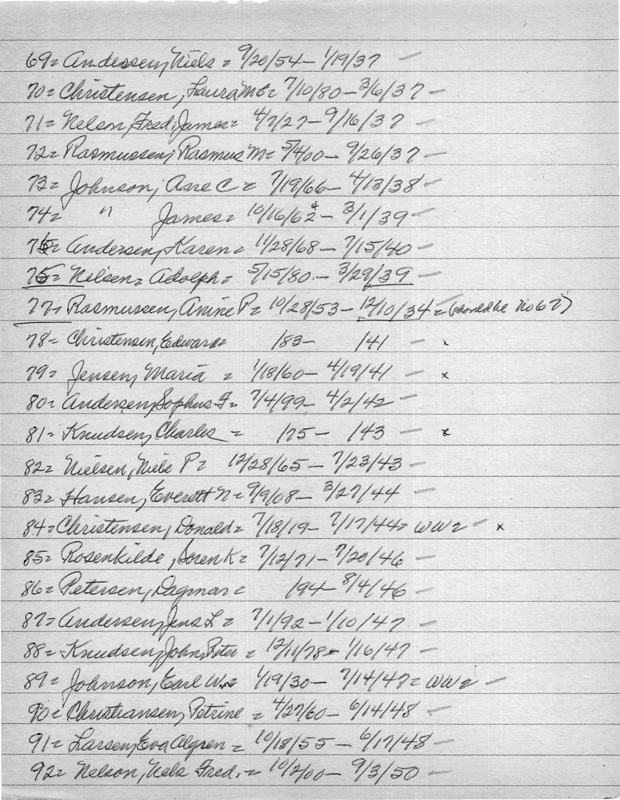 69= Andersen, Niels = 9/20/54 – 1/19/37 –
70= Christensen, Laura Me= 7/10/80 – 3/6/37 –
71= Nelson, Fred, James= 4/7/27 – 9/16/37 –
72= Rasmussen, Rasmus M= 5/4/00 – 9/26/37 –
73= Johnson, Ane C = 7/19/66 – 4/13/38 –
74= " James= 10/16/62 – 3/1/39 –
76= Andersen, Karen = 11/28/68 – 7/15/40 –
75= Nelsen= Adolph= 5/15/80 – 3/29/39 –
77= Rasmussen, Anine P= 10/28/53 – 12/10/34 = (should be No 67)
78= Christensen, Edward= /83 – /41 – x
79= Jensen, Maria = 1/18/60 – 4/19/41 – x
80= Andersen, Sophus F= 7/4/99 – 4/2/42 –
81= Knudsen, Charles = /75 – /43 – x
82= Nielsen, Niels P= 12/28/65 – 7/23/43 –
83= Hansen, Everett N= 9/9/08 – 3/27/44 –
84= Christensen, Donald= 7/18/19 – 7/17/44= WW2 – x
85= Rosenkilde, Soren K= 7/12/71 – 7/20/46 –
86= Petersen, Dagmar = /94 – 8/4/46 –
87= Andersen, Jens L = 7/1/92 – 1/10/47 –
88= Knudsen, John, Peter = 12/11/78 – 1/16/47 –
89= Johnson, Earl W.= 1/19/30 – 7/14/47= WW2 –
90= Christiansen, Petrine = 4/27/60 – 6/14/48 –
91= Larsen, Eva Algren = 10/18/55 – 6/17/48 –
92= Nelson, Nels Fred. = 10/2/00 – 9/3/50 –